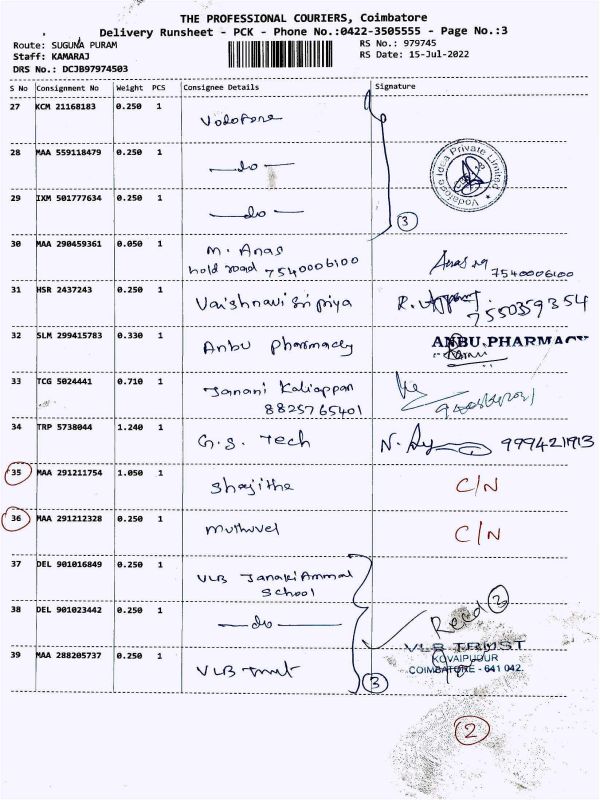 THE PROFESSIONAL COURIERS, Coimbatore
Delivery Runsheet - PCK - Phone No.:0422-3505555 - Page No.:3
Route: SUGUNA PURAM
RS No.: 979745
Staff: KAMARAJ
RS Date: 15-Jul-2022
DRS No.: DCJB97974503
S No Consignment No Weight PCS Consignee Details Signature
27 KCM 21168183 0.250 1 Vodofone
28 MAA 559118479 0.250 1 —do—
Vodafone Idea Private Limited
29 IXM 501777634 0.250 1 —do— 3
30 MAA 290459361 0.050 1 M. Anas
hold road 7540006100 7540006100
31 HSR 2437243 0.250 1 Vaishnavi Sri priya 7550359354
32 SLM 299415783 0.330 1 Anbu pharmacy ANBU PHARMACY
33 TCG 5024441 0.710 1 Janani Kaliappan
8825765401
34 TRP 5738044 1.240 1 G.S. Tech 9994211913
35 MAA 291211754 1.050 1 Shajitha C/N
36 MAA 291212328 0.250 1 Muthuvel C/N
37 DEL 901016849 0.250 1 VLB Janaki Ammal
School
38 DEL 901023442 0.250 1 —do— Recd 2
VLB TRUST
KOVAIPUDUR
COIMBATORE - 641 042.
39 MAA 288205737 0.250 1 VLB Trust 3
2